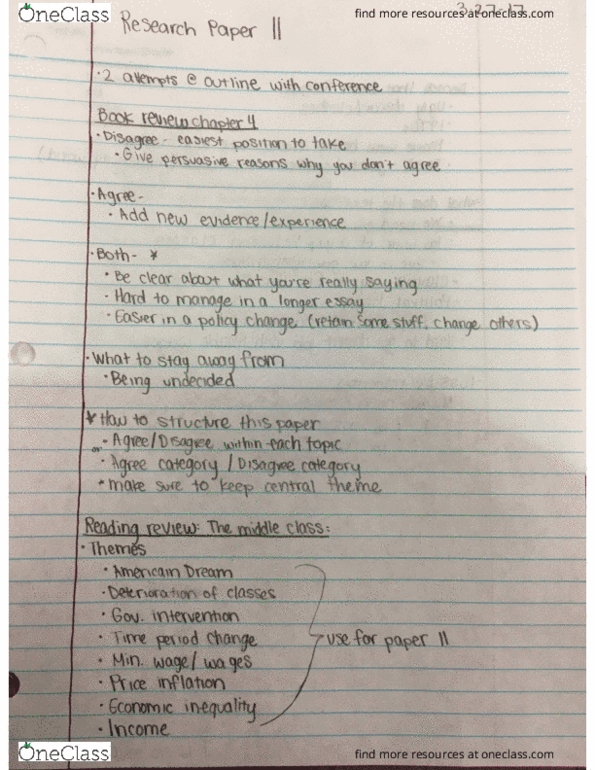 OneClass
find more resources at oneclass.com
3.27.17
Research Paper II
· 2 attempts @ outline with conference
Book review chapter 4
· Disagree - easiest position to take
· Give persuasive reasons why you don't agree
· Agree -
· Add new evidence/experience
· Both - *
· Be clear about what you're really saying
· Hard to manage in a longer essay
· Easier in a policy change (retain some stuff, change others)
· What to stay away from
· Being undecided
* How to structure this paper
or · Agree/Disagree within each topic
· Agree category / Disagree category
* make sure to keep central theme
Reading review: The middle class:
· Themes
· American Dream
· Deterioration of classes
· Gov. intervention
· Time period change
use for paper II
· Min. wage/ wages
· Price inflation
· Economic inequality
· Income
OneClass
find more resources at oneclass.com